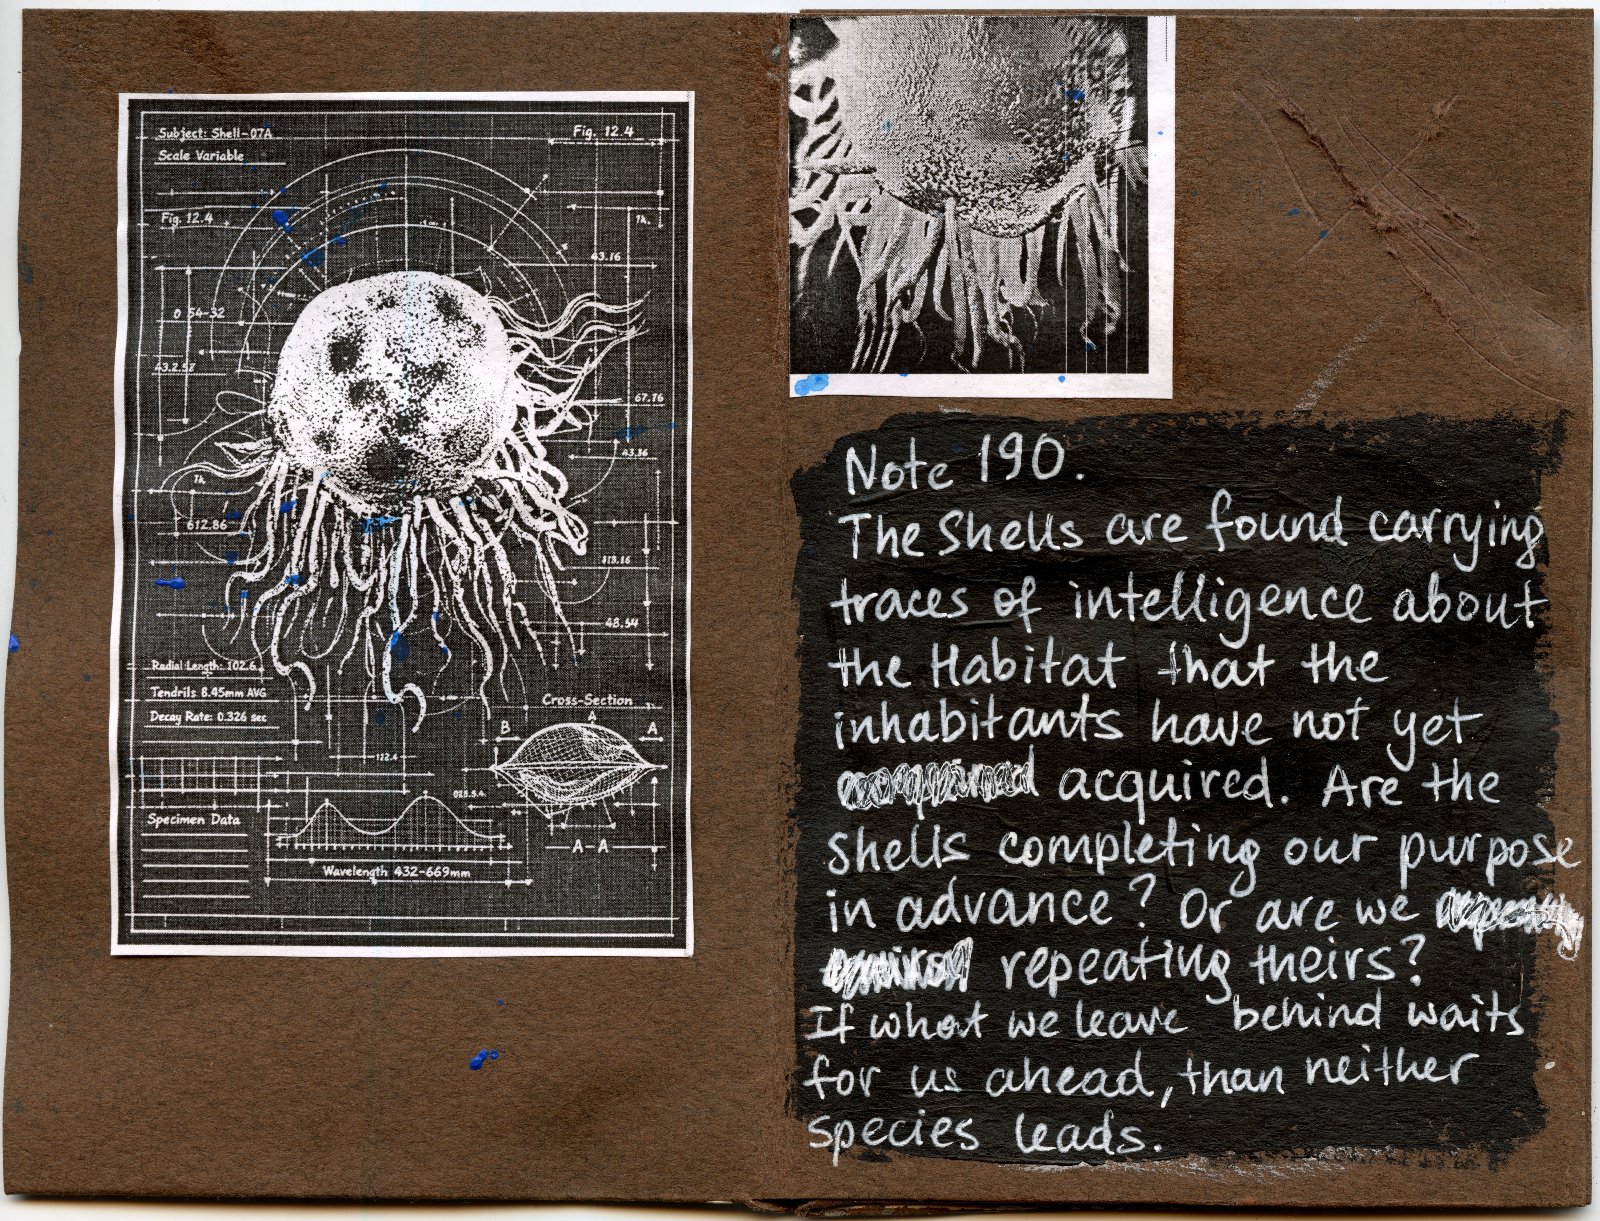 Subject: Shell-07A
Scale Variable
Fig. 12.4
Fig. 12.4
1h.
43.16
0 54-32
43.2.52
67.76
43.36
1h.
612.86
113.16
48.54
Radial Length: 102.6
Tendrils 8.45mm AVG
Decay Rate: 0.326 sec
Cross-Section
B
A
A
122.4
Specimen Data
A-A
Wavelength 432-669mm
Note 190.
The Shells are found carrying
traces of intelligence about
the Habitat that the
inhabitants have not yet
acquired. Are the
shells completing our purpose
in advance? Or are we
repeating theirs?
If what we leave behind waits
for us ahead, than neither
species leads.